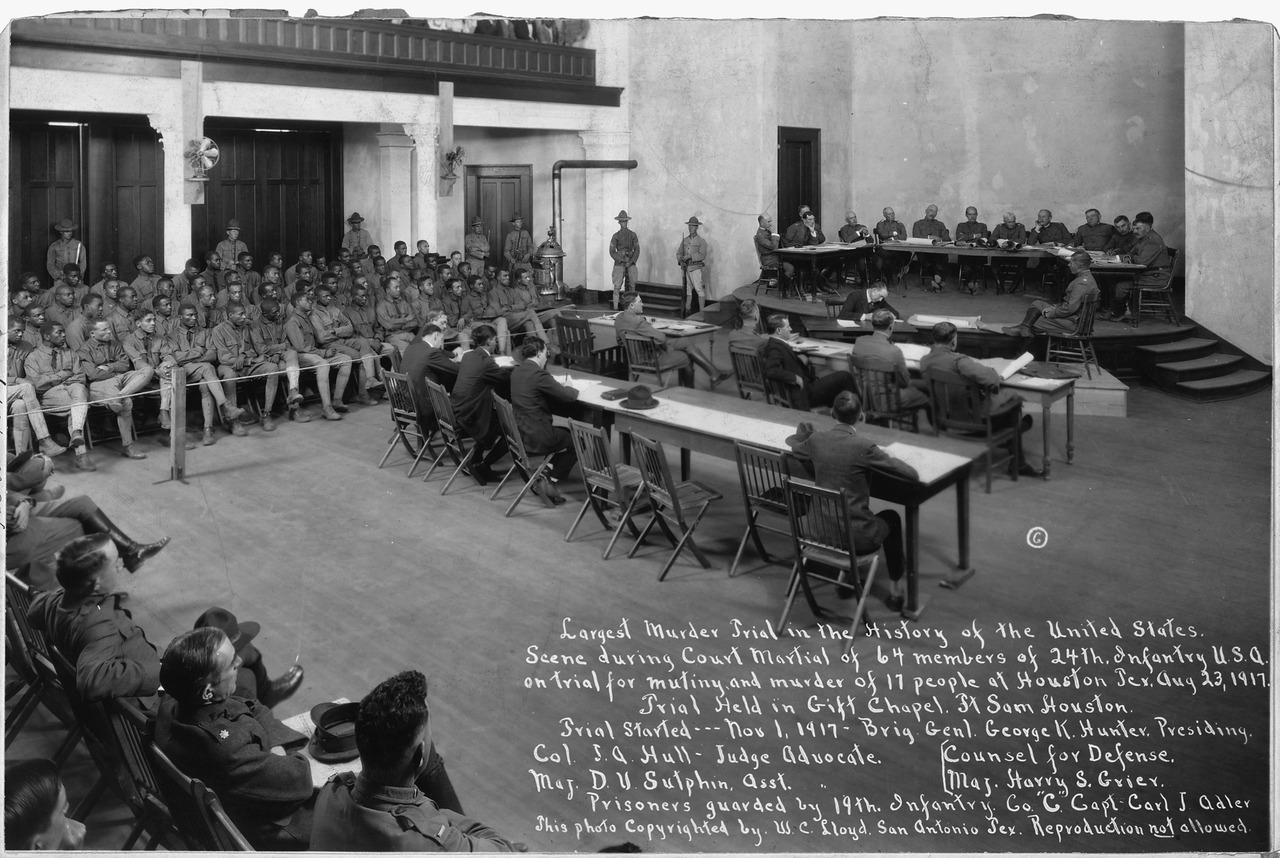 ©
Largest Murder Trial in the History of the United States.
Scene during Court Martial of 64 members of 24th. Infantry U.S.A.
on trial for mutiny and murder of 17 people at Houston Tex. Aug 23, 1917.
Trial Held in Gift Chapel. Ft Sam Houston.
Trial Started --- Nov 1, 1917 - Brig. Genl. George K. Hunter, Presiding.
Col. J. A. Hull - Judge Advocate. Counsel for Defense,
Maj. D. V. Sutphin, Asst. " Maj. Harry S. Grier.
Prisoners guarded by 19th. Infantry Co. "C" Capt. Carl J Adler
This photo Copyrighted by. W. C. Lloyd. San Antonio Tex. Reproduction not allowed.